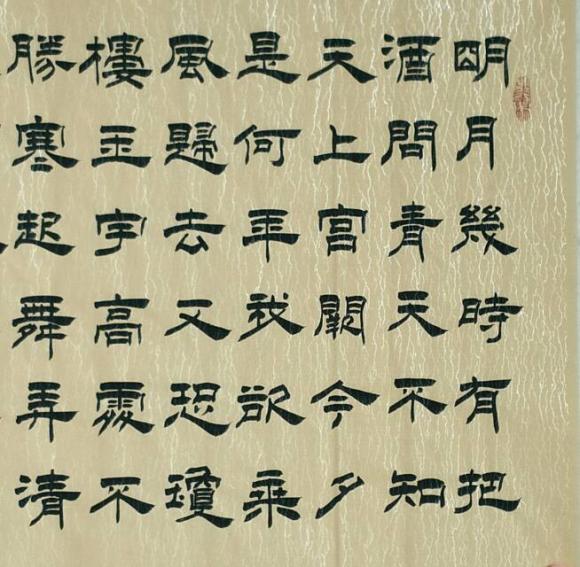 明月幾時有把
酒問青天不知
天上宮闕今夕
是何年我欲乘
風歸去又恐瓊
樓玉宇高處不
勝寒起舞弄清